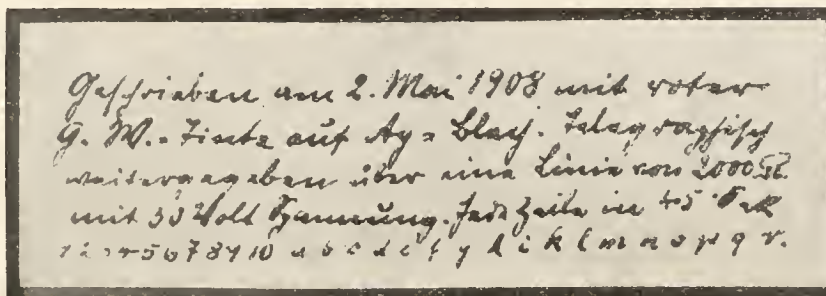 Geschrieben am 2. Mai 1908 mit roter
G. W.-Tinte auf Ag-Blech. Telegraphisch
weitergegeben über eine Linie von 2000 Ω
mit 55 Volt Spannung. Jede Zeile in 45 Sek
1 2 3 4 5 6 7 8 9 10 a b c d e f g h i k l m n o p q r.